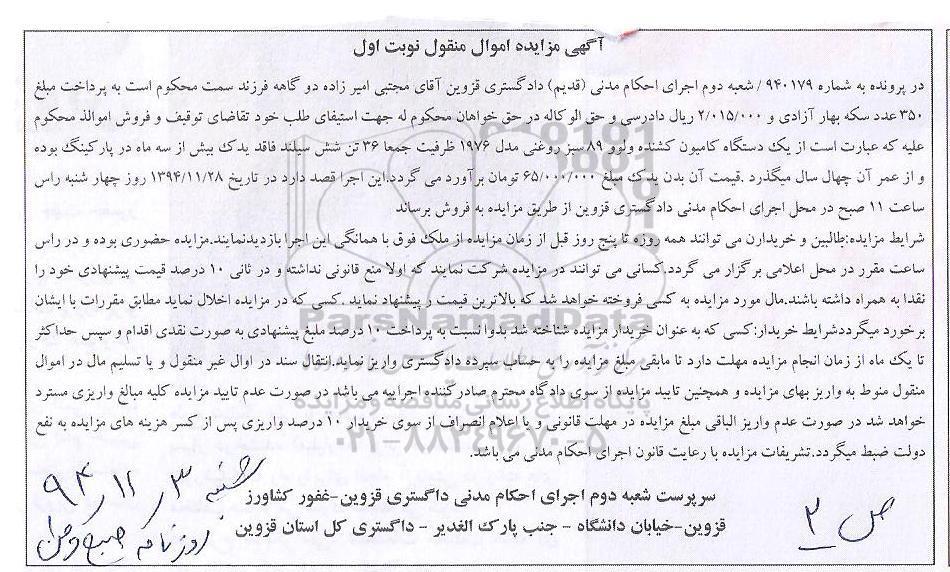 آگهی مزایده اموال منقول نوبت اول
در پرونده به شماره ۹۴۰۱۷۹ / شعبه دوم اجرای احکام مدنی (قدیم) دادگستری قزوین آقای مجتبی امیر زاده دو گاهه فرزند سمت محکوم است به پرداخت مبلغ
۳۵۰ عدد سکه بهار آزادی و ۲/۰۱۵/۰۰۰ ریال دادرسی و حق الو کاله در حق خواهان محکوم له جهت استیفای طلب خود تقاضای توقیف و فروش اموالذ محکوم
علیه که عبارت است از یک دستگاه کامیون کشنده ولوو ۸۹ سبز روغنی مدل ۱۹۷۶ ظرفیت جمعا ۳۶ تن شش سیلند فاقد یدک بیش از سه ماه در پارکینگ بوده
و از عمر آن چهال سال میگذرد .قیمت آن بدن یدک مبلغ ۶۵/۰۰۰/۰۰۰ تومان برآورد می گردد.این اجرا قصد دارد در تاریخ ۱۳۹۴/۱۱/۲۸ روز چهار شنبه راس
ساعت ۱۱ صبح در محل اجرای احکام مدنی دادگستری قزوین از طریق مزایده به فروش برساند
شرایط مزایده:طالبین و خریدارن می توانند همه روزه تا پنج روز قبل از زمان مزایده از ملک فوق با همانگی این اجرا بازدیدنمایند.مزایده حضوری بوده و در راس
ساعت مقرر در محل اعلامی برگزار می گردد.کسانی می توانند در مزایده شرکت نمایند که اولا منع قانونی نداشته و در ثانی ۱۰ درصد قیمت پیشنهادی خود را
نقدا به همراه داشته باشند.مال مورد مزایده به کسی فروخته خواهد شد که بالاترین قیمت ر پیشنهاد نماید .کسی که در مزایده اخلال نماید مطابق مقررات با ایشان
برخورد میگرددشرایط خریدار:کسی که به عنوان خریدار مزایده شناخته شد بدوا نسبت به پرداخت ۱۰ درصد ملبغ پیشنهادی به صورت نقدی اقدام و سپس حداکثر
تا یک ماه از زمان انجام مزایده مهلت دارد تا مابقی مبلغ مزایده را به حساب سپرده دادگستری واریز نماید.انتقال سند در اوال غیر منقول و یا تسلیم مال در اموال
منقول منوط به واریز بهای مزایده و همچنین تایید مزایده از سوی دادگاه محترم صادرکننده اجراییه می باشد در صورت عدم تایید مزایده کلیه مبالغ واریزی مسترد
خواهد شد در صورت عدم واریز الباقی مبلغ مزایده در مهلت قانونی و یا اعلام انصراف از سوی خریدار ۱۰ درصد واریزی پس از کسر هزینه های مزایده به نفع
دولت ضبط میگردد.تشریفات مزایده با رعایت قانون اجرای احکام مدنی می باشد.
سرپرست شعبه دوم اجرای احکام مدنی داگستری قزوین-غفور کشاورز
قزوین-خیابان دانشگاه - جنب پارک الغدیر - داگستری کل استان قزوین
ص ۲
شنبه ۳ / ۱۱ / ۹۴
روزنامه صبح
ParsNamadData
پایگاه اطلاع رسانی مناقصه و مزایده
۰۲۱-۸۸۳۴۹۶۷۰-۵